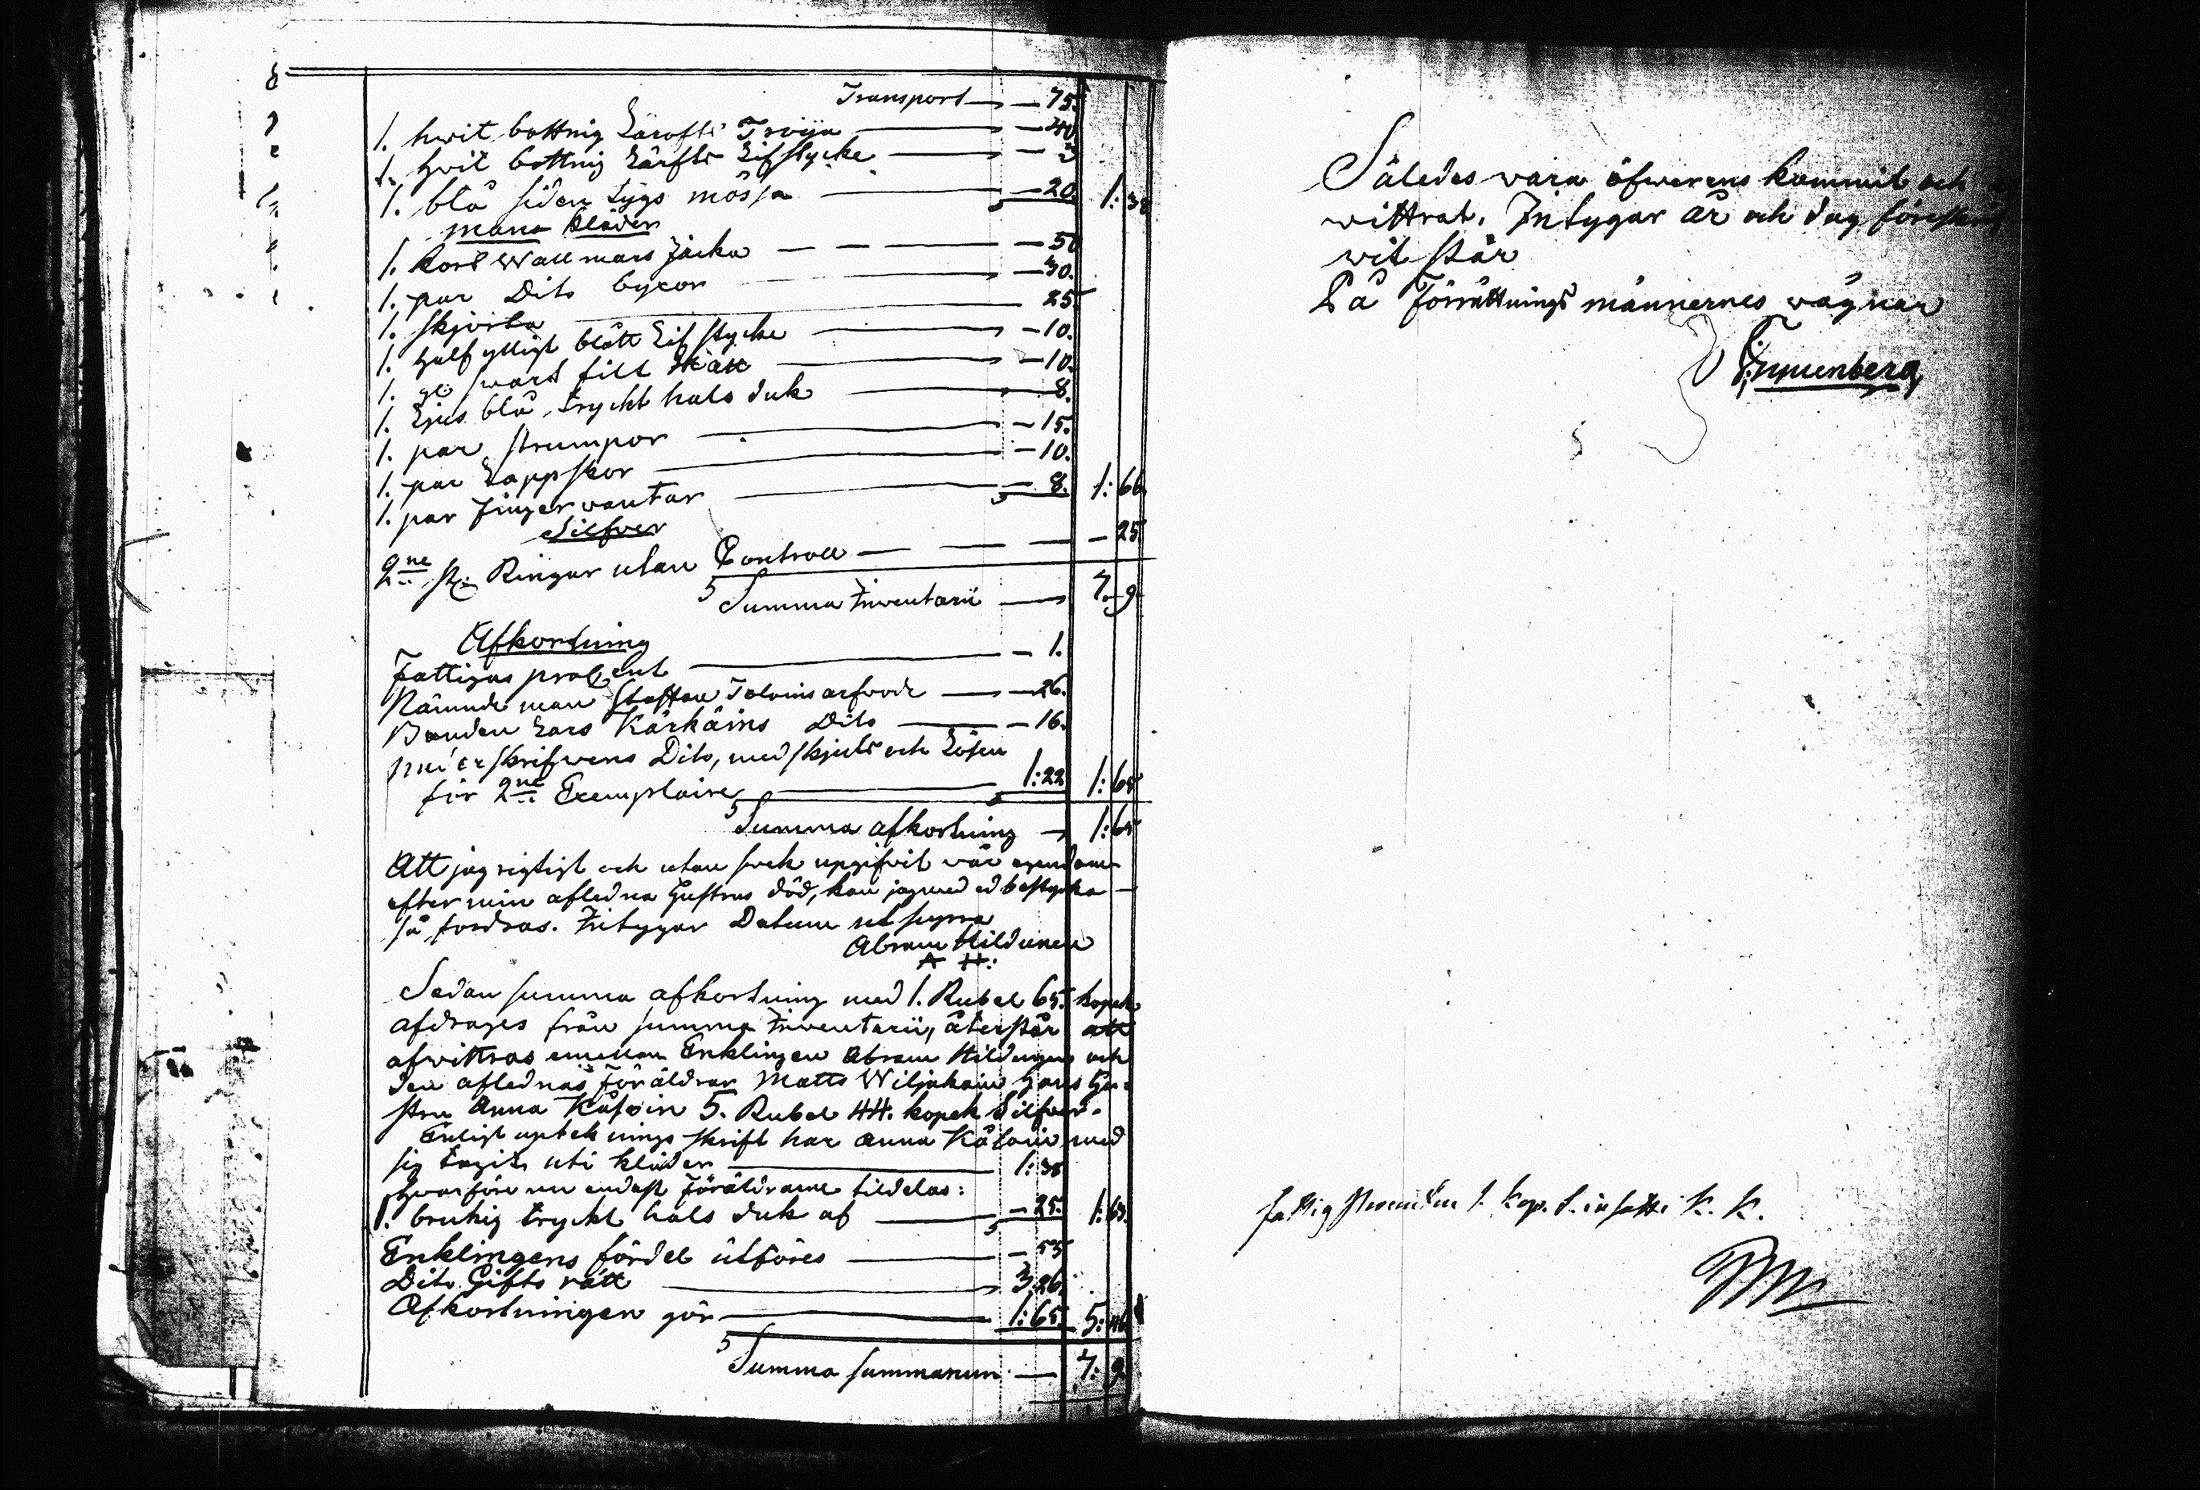 Transport — 75.
1. hwit bottnig Lärofts Tröija — 40
1. hvit bottnig Lärfts Lifstycke — 3
1. blå siden tygs mössa — 20. 1: 38
mans kläder
1. kort Wallmars Jacka — 50
1. par Dito byxor — 30.
1. skjorta 25
1. half ylligt blått Lifstycke — 10.
1. gl swart filt Hatt — 10.
1. Ljus blå, tryckt hals duk — 8.
1. par strumpor — 15.
1. par Lappskor — 10.
1. par Finger vantar — 8. 1: 66.
Silfver
2ne st. Ringar utan Controll — 25.
Summa Inventarii — 7. 9.
Afkortning
Fattigas procent — 1.
Nämnde man Staffan Tolvins arfvode — 26.
Bonden Lars Kärhäins Dito — 16.
skrifvens Dito, med skjuts och Lösen
för 2ne Exemplaire 1:22 1: 65
Summa afkortning — 1: 65
Att jag rigtigt och utan svek upgifvit vår egendom
efter min aflednа hustrus död, kan jag med ed bestyrka
så fordras. Intygar Datum ut supra
Abram Hildunen
A H:
Sedan summa afkortning med 1. Rubel 65. kopek
afdrages från summa Inventarii, återstår att
afvittras emellan Enklingen Abram Hildunen och
den aflednas Föräldrar Matts Wiljakain hans hu-
stru Anna Käsoin 5. Rubel 44. kopek Silfver.
Enligt upteknings skrift har Anna med
sig tagit uti kläder 1: 38
hvarföre nu endast Föräldrarne tildelas:
1. brukig tryckt hals duk af — 25. 1: 63.
Enklingens fördel utföres — 55
Dito Gifto rätt 3. 26.
Afkortningen gör — 1: 65. 5: 46
Summa summarum — 7. 9.
Således vara öfwerens kommit och
wittrat. Intygar år och dag föreskrif
wit står
På Förrättnings männernes wägnar
fattig kop. K. K.